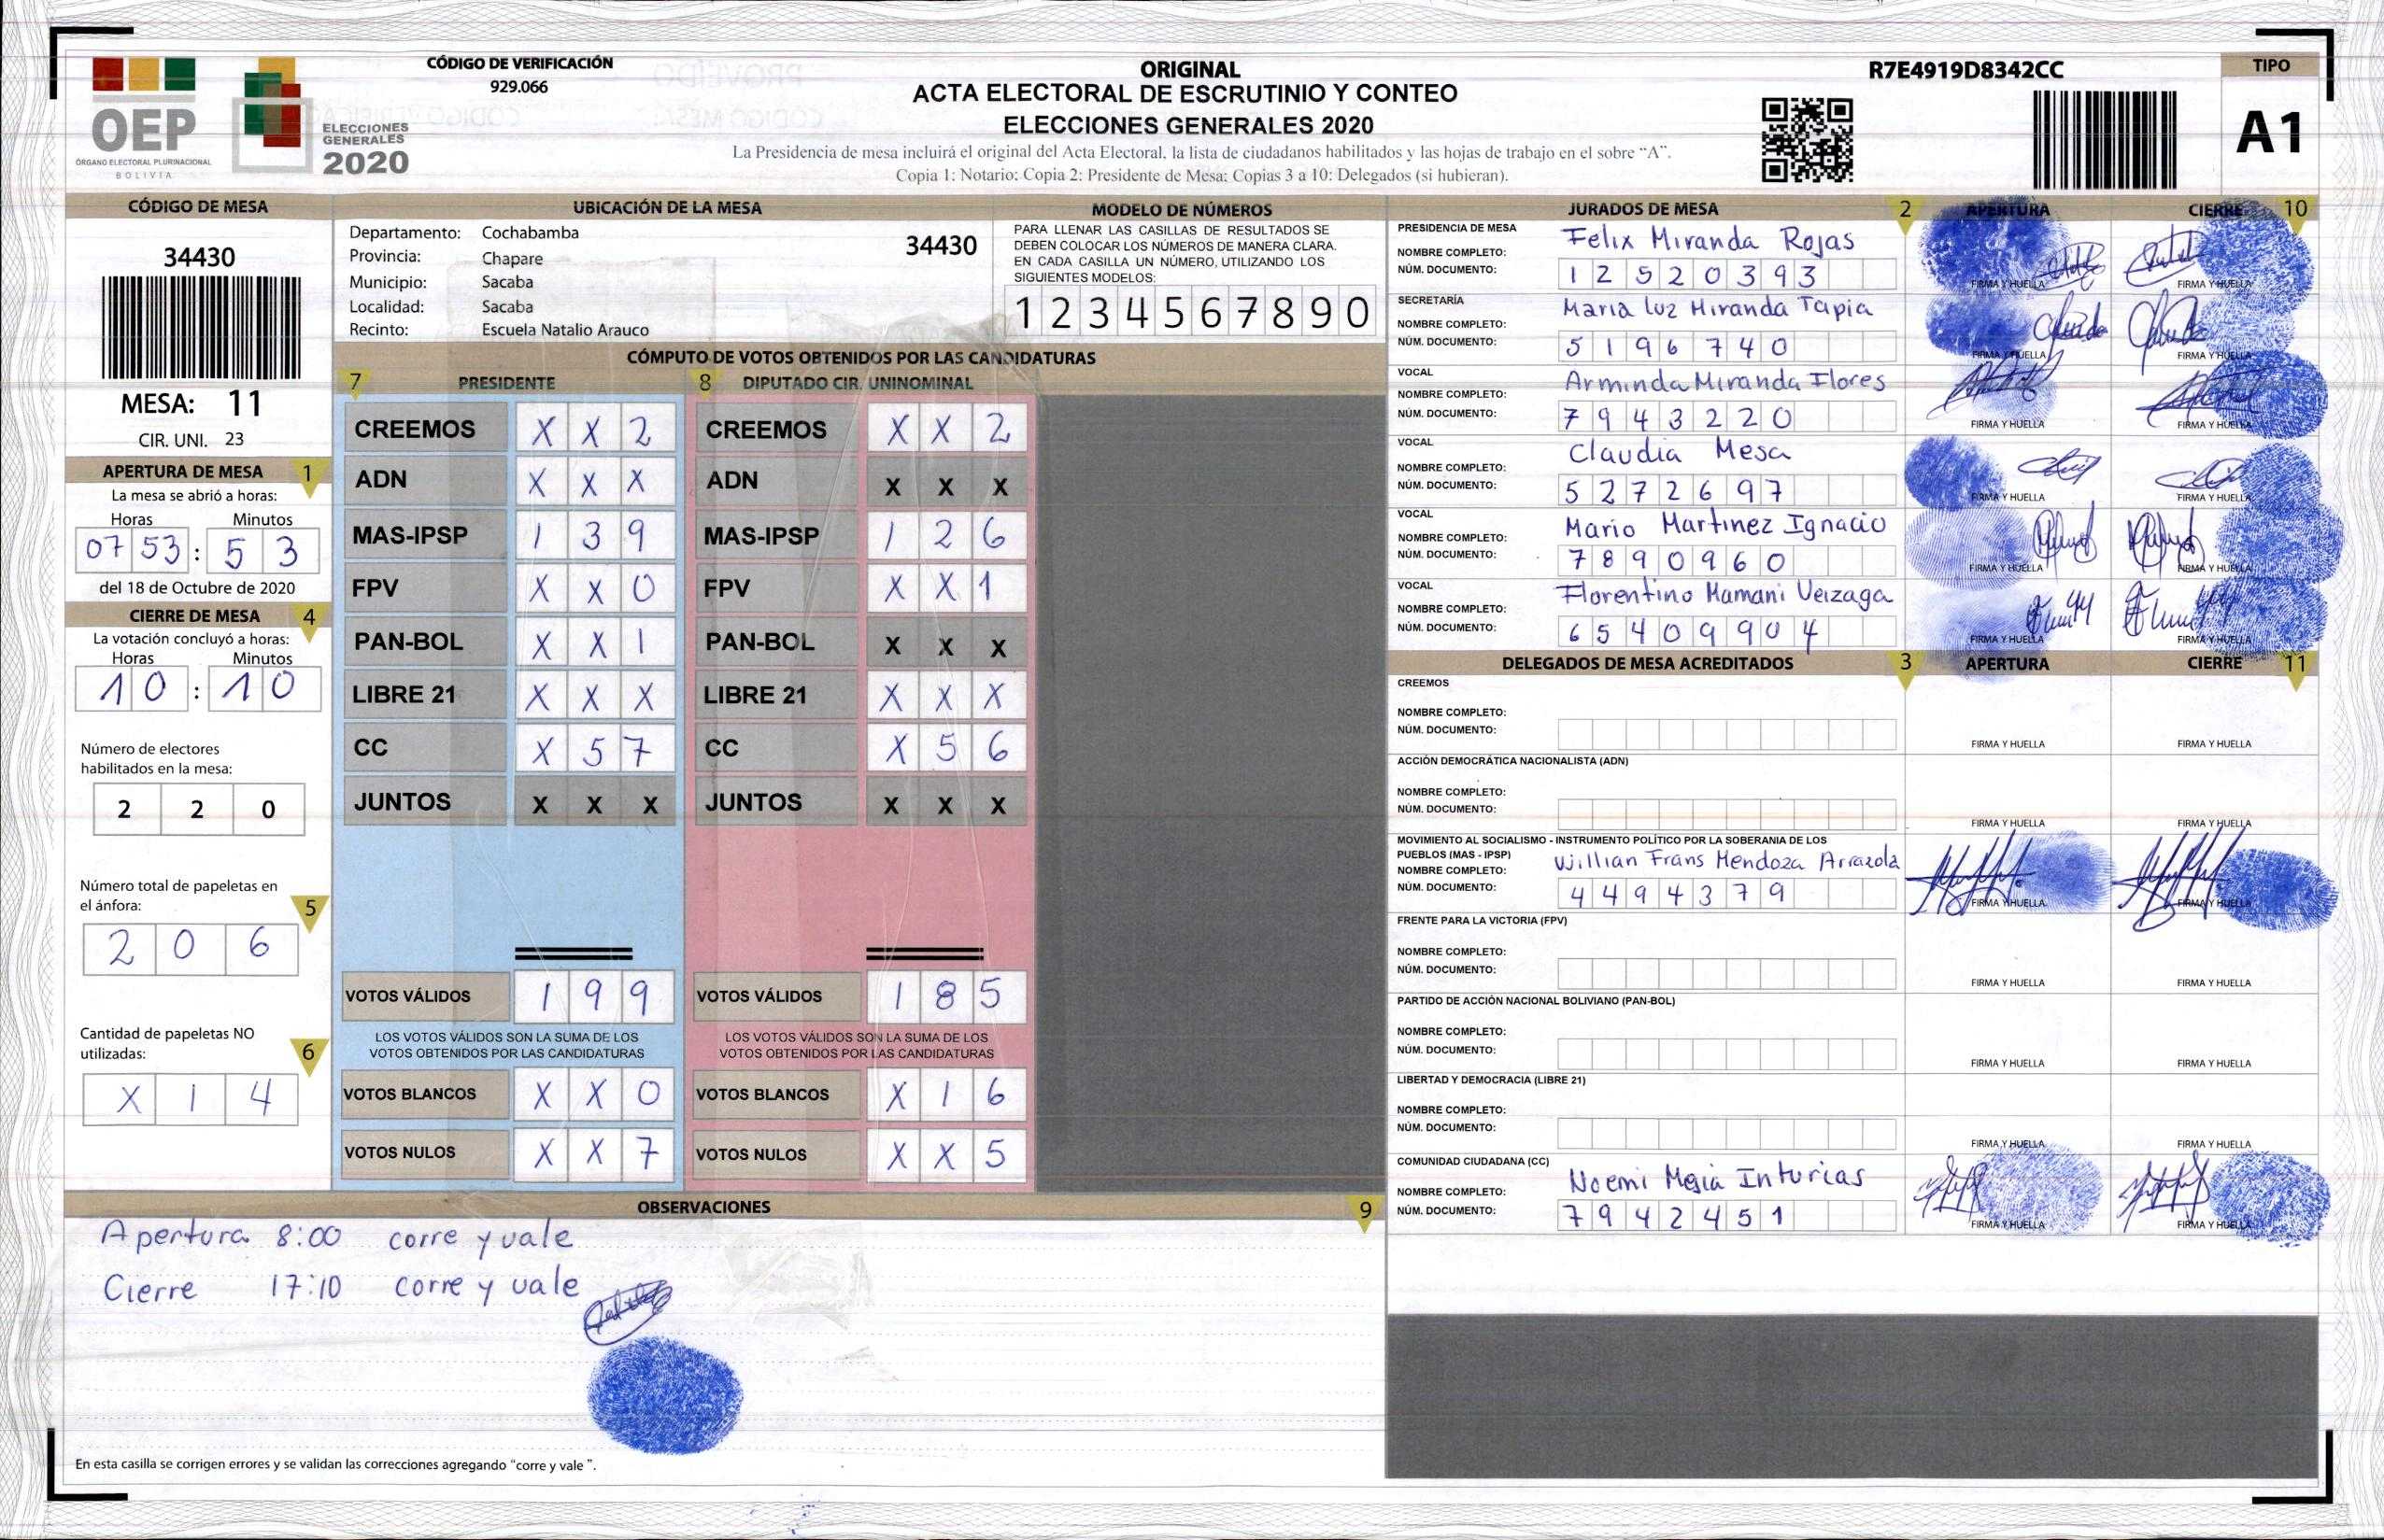 OEP
ÓRGANO ELECTORAL PLURINACIONAL
BOLIVIA
ELECCIONES
GENERALES
2020
CÓDIGO DE VERIFICACIÓN
929.066
ORIGINAL
ACTA ELECTORAL DE ESCRUTINIO Y CONTEO
ELECCIONES GENERALES 2020
La Presidencia de mesa incluirá el original del Acta Electoral, la lista de ciudadanos habilitados y las hojas de trabajo en el sobre “A”.
Copia 1: Notario: Copia 2: Presidente de Mesa: Copias 3 a 10: Delegados (si hubieran).
R7E4919D8342CC
TIPO
A1
CÓDIGO DE MESA
34430
MESA: 11
CIR. UNI. 23
APERTURA DE MESA 1
La mesa se abrió a horas:
Horas Minutos
07 53 : 5 3
del 18 de Octubre de 2020
CIERRE DE MESA 4
La votación concluyó a horas:
Horas Minutos
1 0 : 1 0
Número de electores
habilitados en la mesa:
2 2 0
Número total de papeletas en
el ánfora: 5
2 0 6
Cantidad de papeletas NO
utilizadas: 6
X 1 4
UBICACIÓN DE LA MESA
Departamento: Cochabamba
Provincia: Chapare
Municipio: Sacaba
Localidad: Sacaba
Recinto: Escuela Natalio Arauco
34430
MODELO DE NÚMEROS
PARA LLENAR LAS CASILLAS DE RESULTADOS SE
DEBEN COLOCAR LOS NÚMEROS DE MANERA CLARA.
EN CADA CASILLA UN NÚMERO, UTILIZANDO LOS
SIGUIENTES MODELOS:
1 2 3 4 5 6 7 8 9 0
CÓMPUTO DE VOTOS OBTENIDOS POR LAS CANDIDATURAS
7 PRESIDENTE 8 DIPUTADO CIR. UNINOMINAL
CREEMOS X X 2 CREEMOS X X 2
ADN X X X ADN X X X
MAS-IPSP 1 3 9 MAS-IPSP 1 2 6
FPV X X 0 FPV X X 1
PAN-BOL X X 1 PAN-BOL X X X
LIBRE 21 X X X LIBRE 21 X X X
CC X 5 7 CC X 5 6
JUNTOS X X X JUNTOS X X X
VOTOS VÁLIDOS 1 9 9 VOTOS VÁLIDOS 1 8 5
LOS VOTOS VÁLIDOS SON LA SUMA DE LOS LOS VOTOS VÁLIDOS SON LA SUMA DE LOS
VOTOS OBTENIDOS POR LAS CANDIDATURAS VOTOS OBTENIDOS POR LAS CANDIDATURAS
VOTOS BLANCOS X X 0 VOTOS BLANCOS X 1 6
VOTOS NULOS X X 7 VOTOS NULOS X X 5
OBSERVACIONES 9
Apertura 8:00 corre y vale
Cierre 17:10 corre y vale
En esta casilla se corrigen errores y se validan las correcciones agregando “corre y vale ”.
JURADOS DE MESA 2 APERTURA CIERRE 10
PRESIDENCIA DE MESA
NOMBRE COMPLETO: Felix Miranda Rojas
NÚM. DOCUMENTO: 1 2 5 2 0 3 9 3
FIRMA Y HUELLA FIRMA Y HUELLA
SECRETARÍA
NOMBRE COMPLETO: Maria luz Miranda Tapia
NÚM. DOCUMENTO: 5 1 9 6 7 4 0
FIRMA Y HUELLA FIRMA Y HUELLA
VOCAL
NOMBRE COMPLETO: Arminda Miranda Flores
NÚM. DOCUMENTO: 7 9 4 3 2 2 0
FIRMA Y HUELLA FIRMA Y HUELLA
VOCAL
NOMBRE COMPLETO: Claudia Mesa
NÚM. DOCUMENTO: 5 2 7 2 6 9 7
FIRMA Y HUELLA FIRMA Y HUELLA
VOCAL
NOMBRE COMPLETO: Mario Martinez Ignacio
NÚM. DOCUMENTO: 7 8 9 0 9 6 0
FIRMA Y HUELLA FIRMA Y HUELLA
VOCAL
NOMBRE COMPLETO: Florentino Mamani Veizaga
NÚM. DOCUMENTO: 6 5 4 0 9 9 0 4
FIRMA Y HUELLA FIRMA Y HUELLA
DELEGADOS DE MESA ACREDITADOS 3 APERTURA CIERRE 11
CREEMOS
NOMBRE COMPLETO:
NÚM. DOCUMENTO:
FIRMA Y HUELLA FIRMA Y HUELLA
ACCIÓN DEMOCRÁTICA NACIONALISTA (ADN)
NOMBRE COMPLETO:
NÚM. DOCUMENTO:
FIRMA Y HUELLA FIRMA Y HUELLA
MOVIMIENTO AL SOCIALISMO - INSTRUMENTO POLÍTICO POR LA SOBERANIA DE LOS
PUEBLOS (MAS - IPSP)
NOMBRE COMPLETO: Willian Frans Mendoza Arrazola
NÚM. DOCUMENTO: 4 4 9 4 3 7 9
FIRMA Y HUELLA FIRMA Y HUELLA
FRENTE PARA LA VICTORIA (FPV)
NOMBRE COMPLETO:
NÚM. DOCUMENTO:
FIRMA Y HUELLA FIRMA Y HUELLA
PARTIDO DE ACCIÓN NACIONAL BOLIVIANO (PAN-BOL)
NOMBRE COMPLETO:
NÚM. DOCUMENTO:
FIRMA Y HUELLA FIRMA Y HUELLA
LIBERTAD Y DEMOCRACIA (LIBRE 21)
NOMBRE COMPLETO:
NÚM. DOCUMENTO:
FIRMA Y HUELLA FIRMA Y HUELLA
COMUNIDAD CIUDADANA (CC)
NOMBRE COMPLETO: Noemi Mejia Inturias
NÚM. DOCUMENTO: 7 9 4 2 4 5 1
FIRMA Y HUELLA FIRMA Y HUELLA